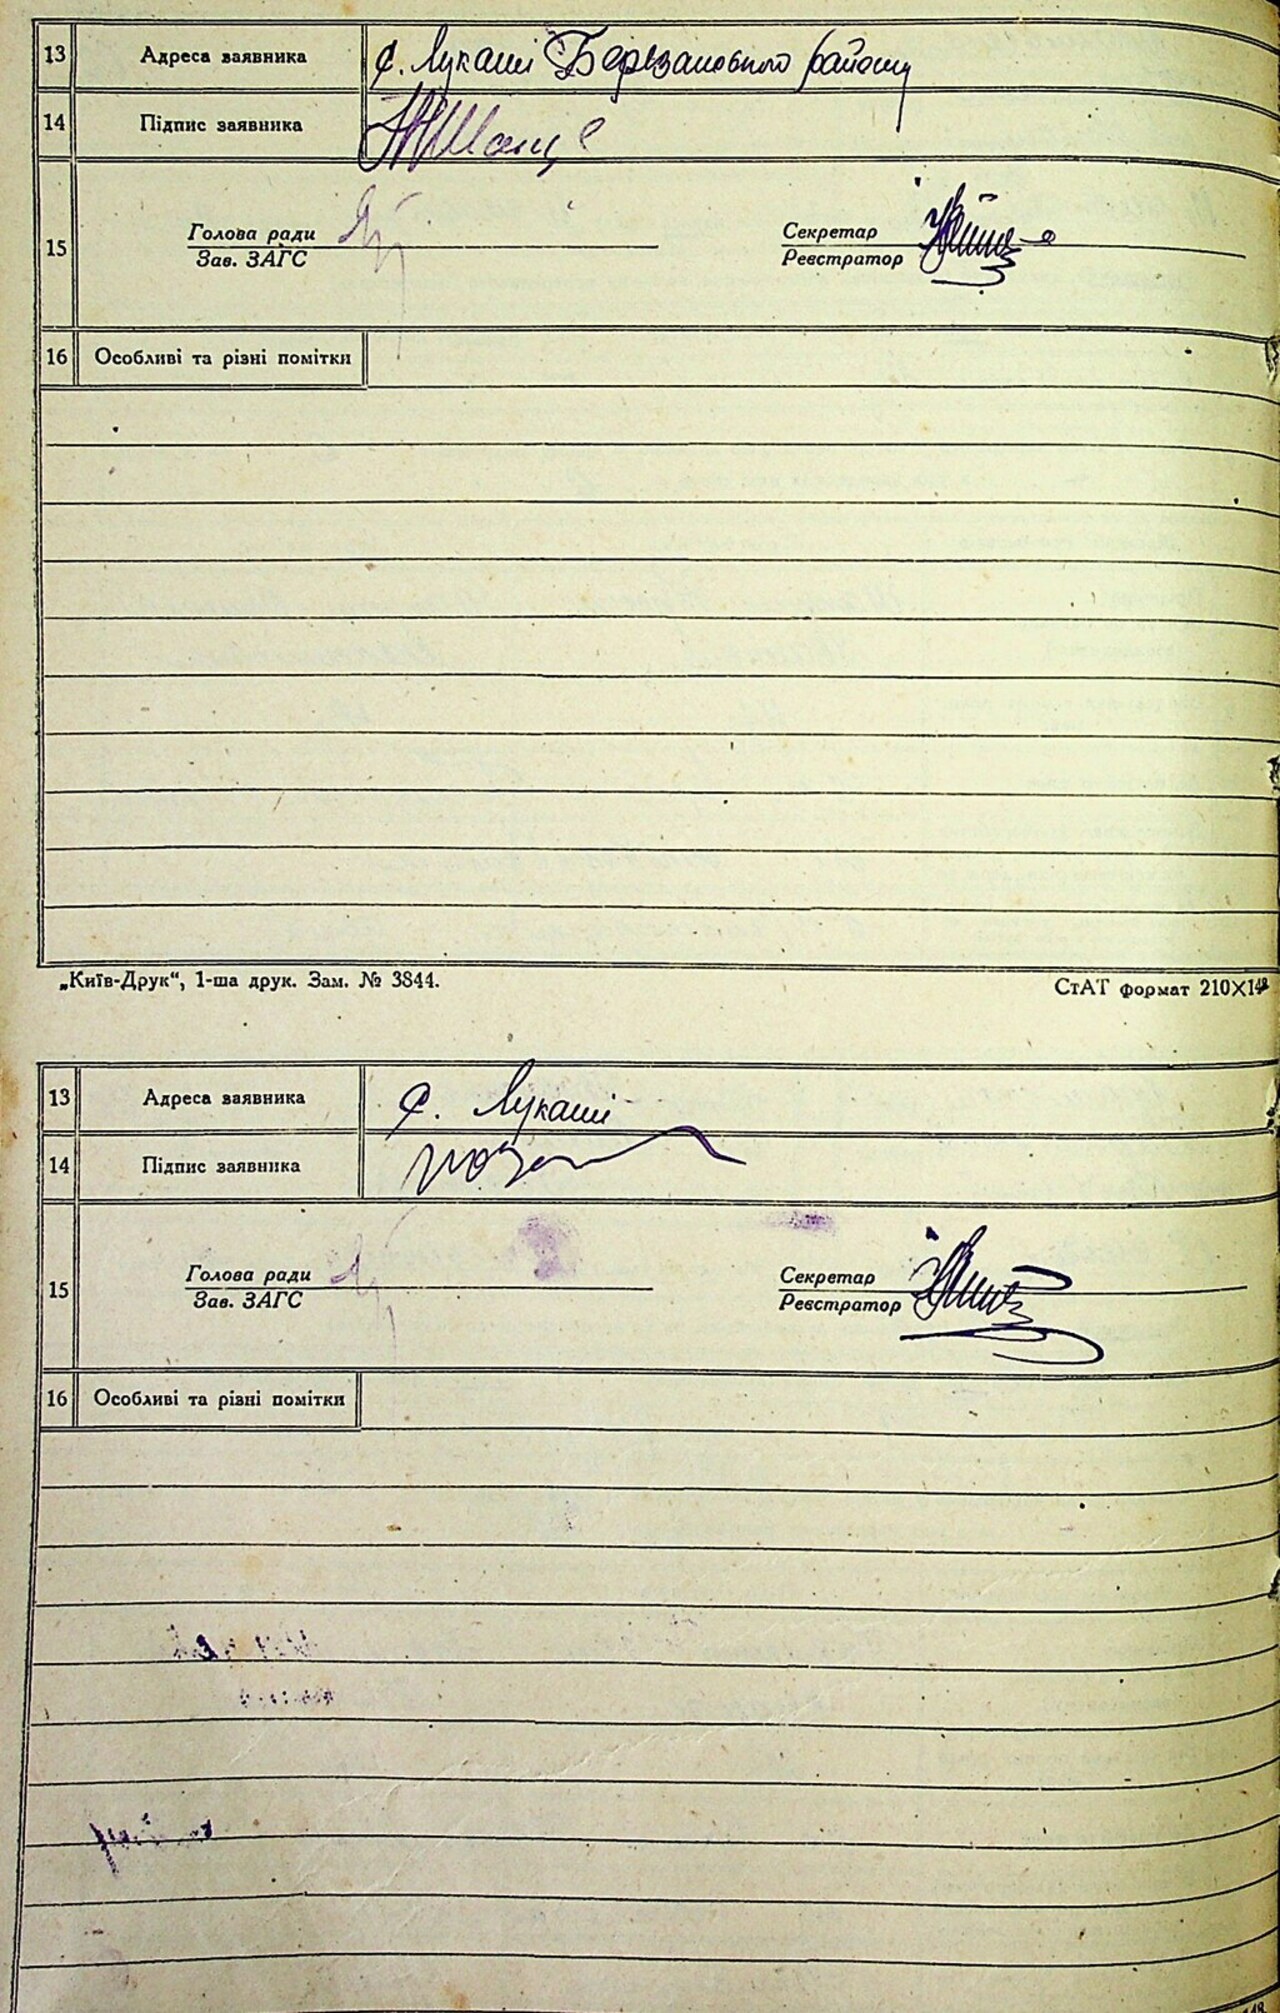 13 Адреса заявника с. Лукаші Березанського району
14 Підпис заявника
15 Голова ради Секретар
Зав. ЗАГС Реєстратор
16 Особливі та різні помітки
„Київ-Друк“, 1-ша друк. Зам. № 3844. СтАТ формат 210X148
13 Адреса заявника с. Лукаші
14 Підпис заявника
15 Голова ради Секретар
Зав. ЗАГС Реєстратор
16 Особливі та різні помітки